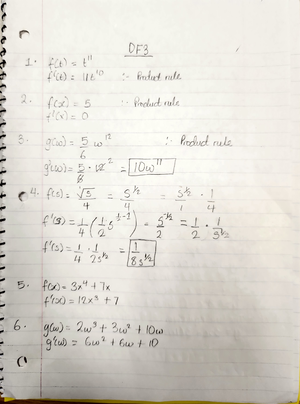 DF3
1. f(t) = t^11
f'(t) = 11t^10 ∴ Product rule
2. f(x) = 5 ∴ Product rule
f'(x) = 0
3. g(w) = 5/6 w^12 ∴ Product rule
g'(w) = 5/6 · 12 = 10w^11
4. f(s) = √s/4 = s^1/2/4 = s^1/2 · 1/4
f'(s) = 1/4 (1/2 s^1/2-1) = s^-1/2/2 = 1/2 · 1/s^1/2
f'(s) = 1/4 · 1/2s^1/2 = 1/8s^1/2
5. f(x) = 3x^4 + 7x
f'(x) = 12x^3 + 7
6. g(w) = 2w^3 + 3w^2 + 10w
g'(w) = 6w^2 + 6w + 10